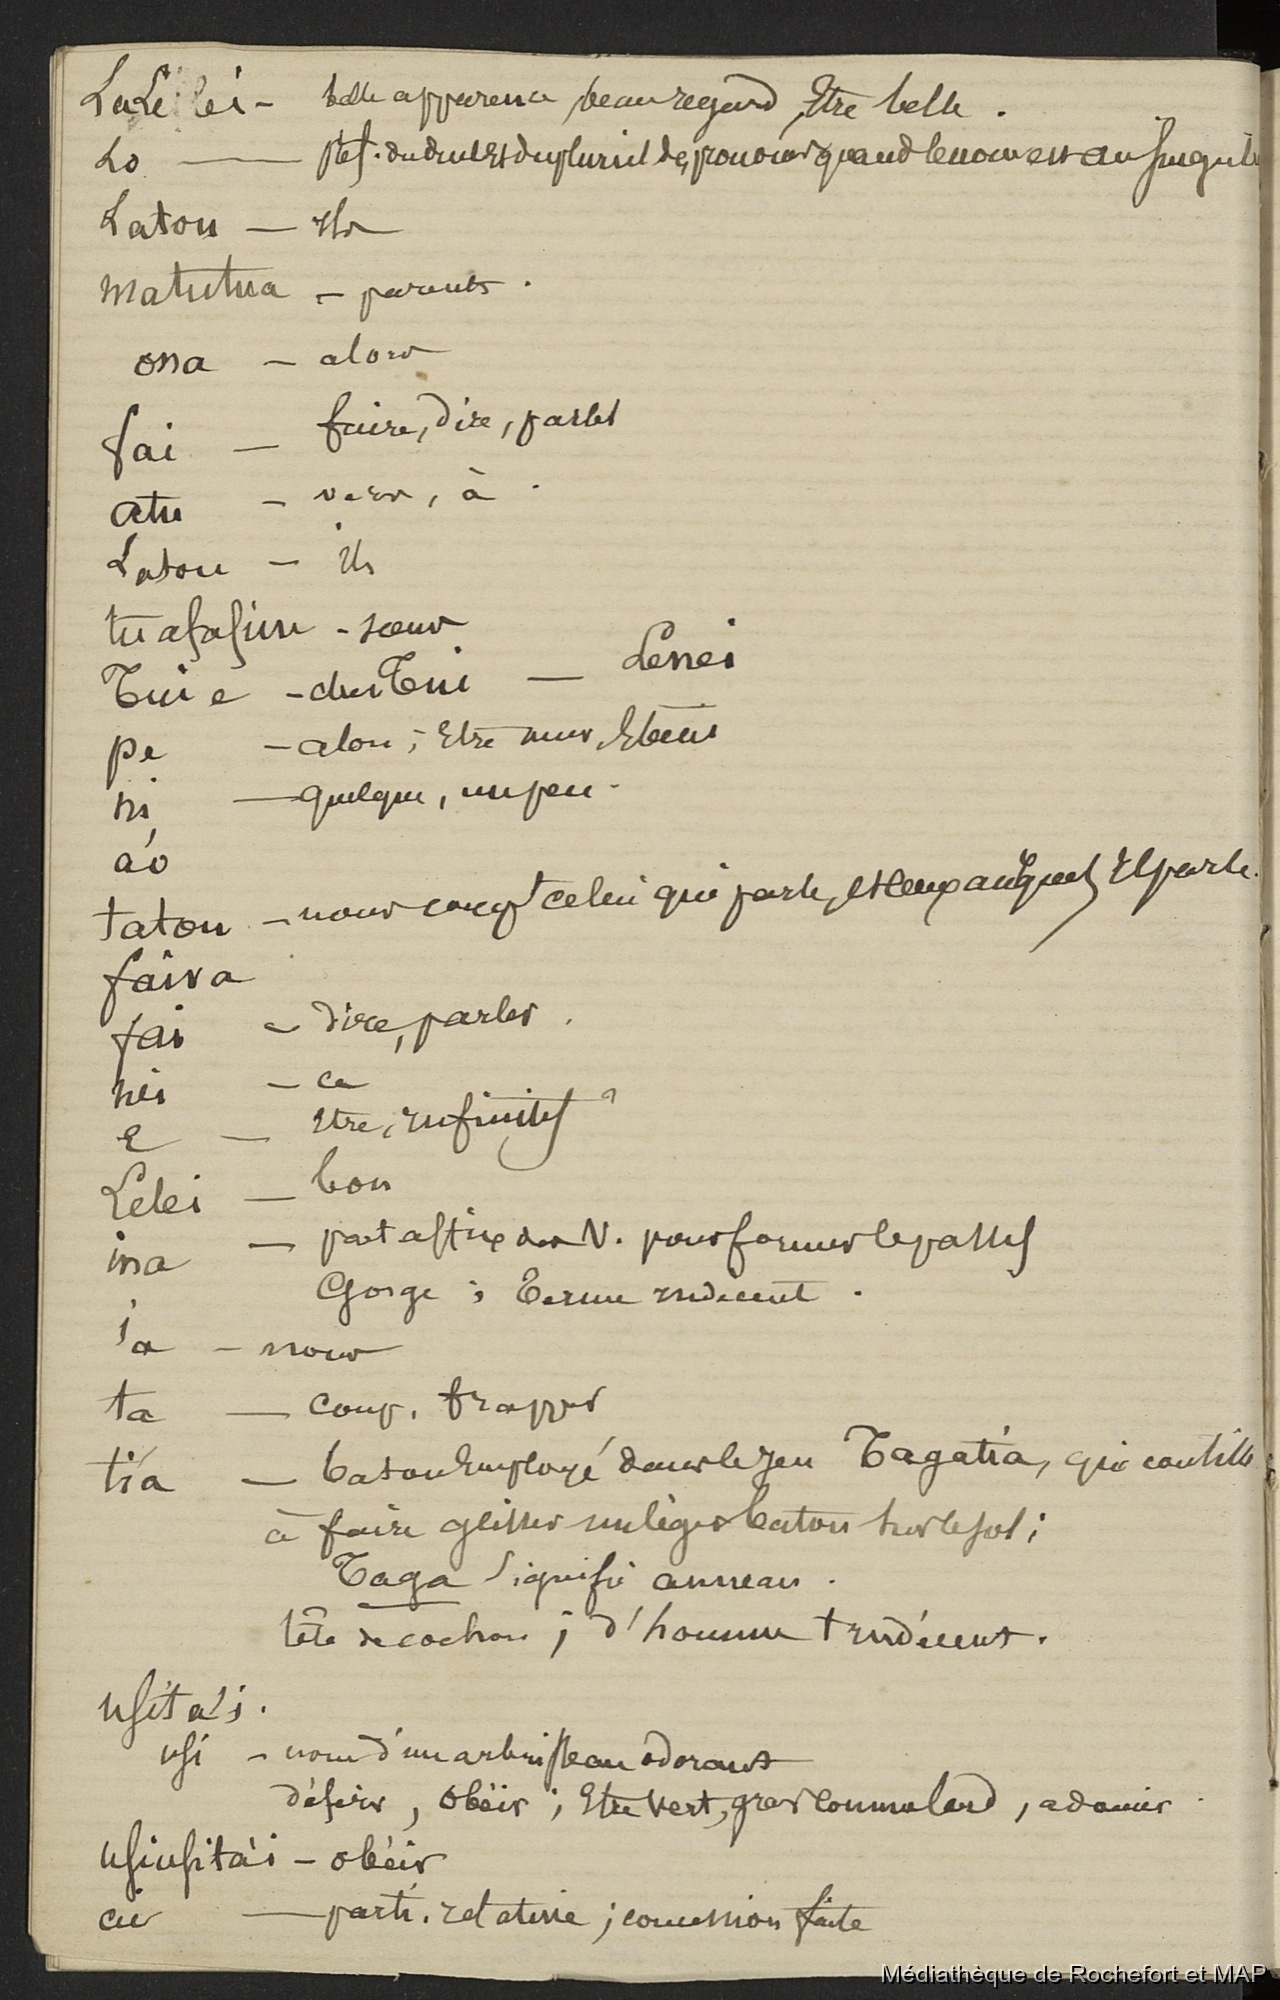 LaLelei - belle apparence, beau regard, Etre belle.
Lo — pref. du duel et du pluriel des pronoms quand le nom est au singuli
Latou — Ils
matutua - parents.
ona - alors
fai - faire, dire, parler
atu - vers, à
Latou - ils
tuafafine - sœur
Tui e - du Tui — Lenei
pe - alou ; Etre mur,
ni - quelque, un peu.
a'o
tatou - nous compt celui qui parle, et ceux auxquels Il parle.
faiva
fai - dire, parler.
nei - ce
E - Etre, infinitif ?
Lelei - bon
ina - part affixe des V. pour former le passif
Gorge ; Terme indécent.
ia - nous
ta - coup, frapper
tia - baton Employé dans le jeu Tagatia, qui consiste
à faire glisser un léger baton sur le sol ;
Taga signifie anneau.
tête de cochon ; d'homme t indécent.
usita'i.
usi - nom d'un arbrisseau odorant
désirer, obéir ; Etre vert, gras comme lard, adoucir
usiusitai - obéir
ai - parti. relative ; concession faite
Médiathèque de Rochefort et MAP